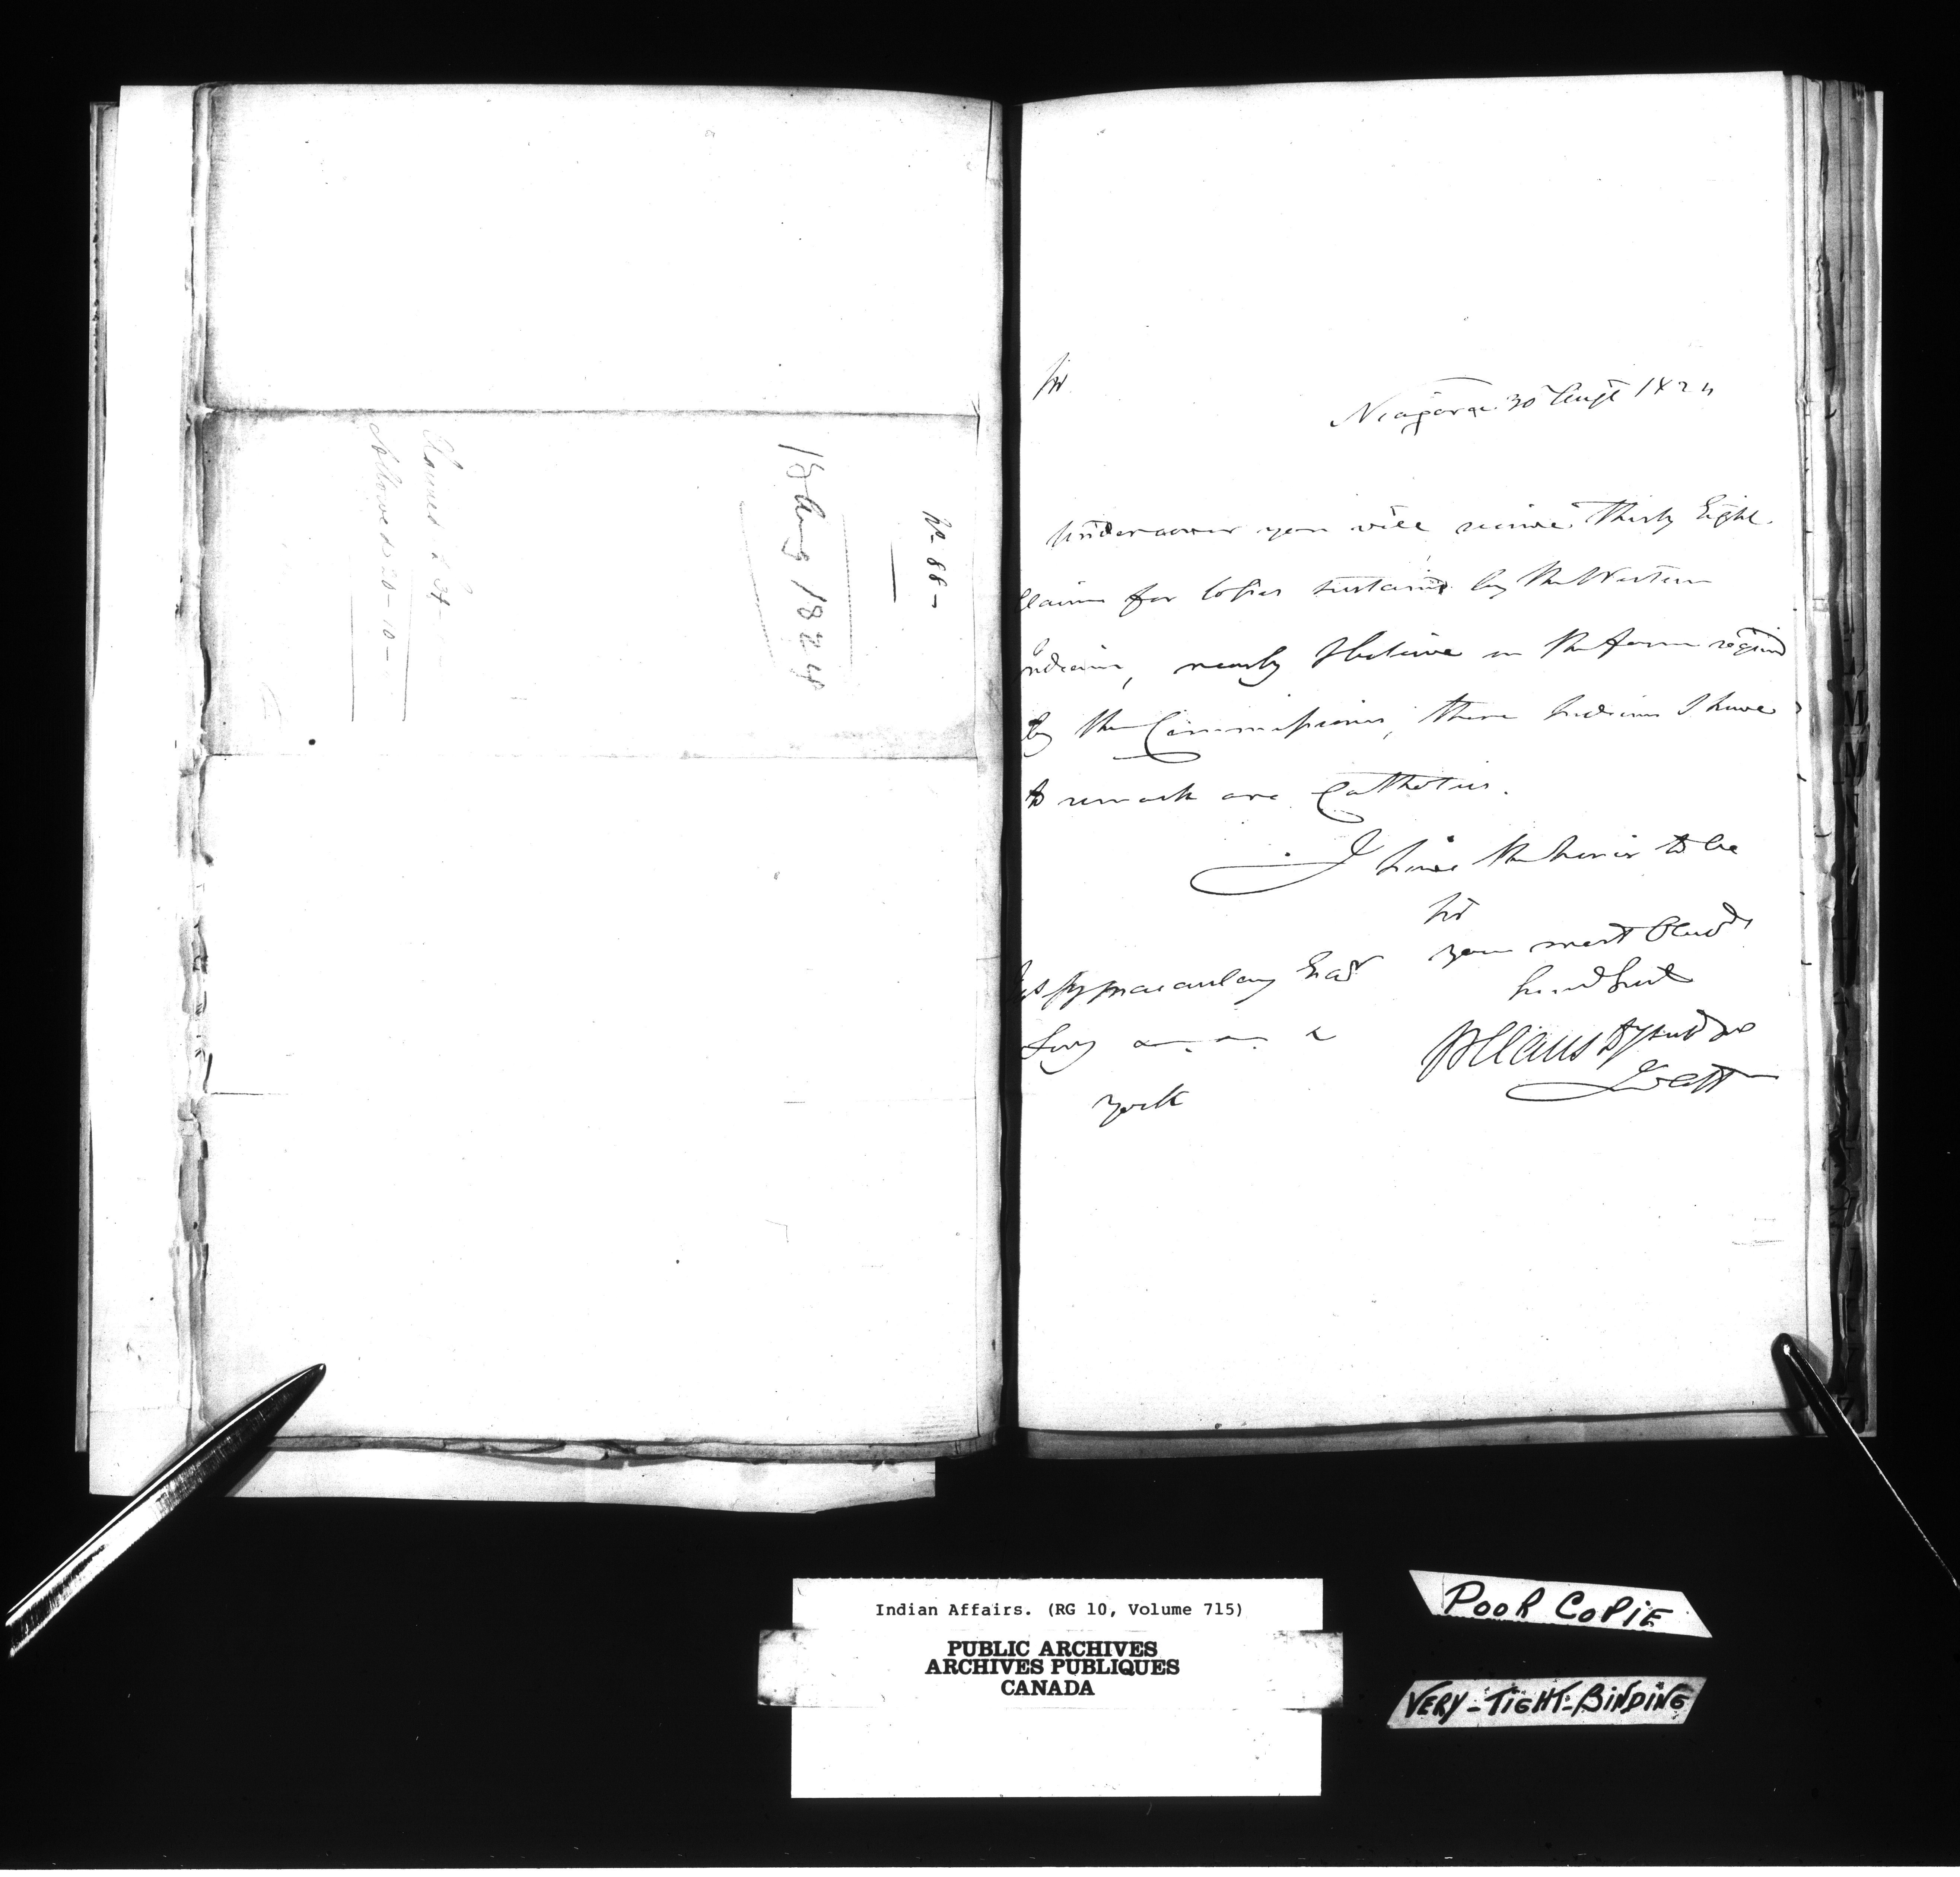 No 88 -
18 Aug 1824
Claimed £ 34
Allowed 20 - 10 -
Sir
Niagara 30 Augt 1824
Under cover you will receive Thirty Eight
Claims for losses sustained by the Western
Indians, nearly I believe in the form required
by the Commissioners, these Indians I have
to remark are Catholics.
I have the honor to be
Sir
your most Obed
humb Sert
Macaulay Esqr
W Claus
York
Indian Affairs. (RG 10, Volume 715)
PUBLIC ARCHIVES
ARCHIVES PUBLIQUES
CANADA
POOR COPIE
VERY-TIGHT-BINDING